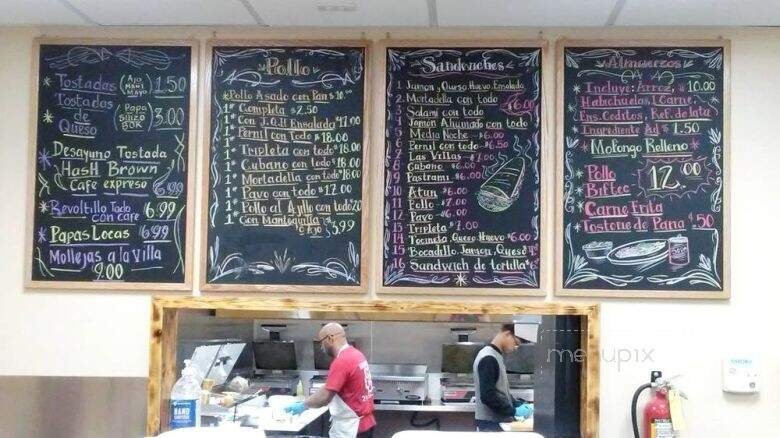 Tostadas (Ajo Mani Mayo) 1.50
Tostadas de Queso (Papa Suizo BOK) 3.00
Desayuno Tostada
Hash Brown
Cafe expreso 6.99
Revoltillo Todo con cafe 6.99
Papas Locas 6.99
Mollejas a la Villa
9.00
Pollo
Pollo Asado con Pan $10.00
1# Completa $2.50
1# Con J.Q.H Ensalada
1# Pernil con Todo $18.00
1# Tripleta con todo $18.00
1# Cubano con todo $18.00
1# Mortadella con todo $18.00
1# Pavo con todo
1# Pollo al Ajillo con todo
1# Con Mantequilla 3.99
Sandwiches
1 Jamon y Queso, Huevo, Ensalada
2 Mortadella con todo $6.00
3 Salami con todo
4 Jamon Ahumado con todo
5 Media Noche $6.00
6 Pernil con todo $6.50
7 Las Villas $7.00
8 Cubano $6.00
9 Pastrami $6.00
10 Atun $6.00
11 Pollo $7.00
12 Pavo $6.00
13 Tripleta $7.00
14 Tocineta, Queso, Huevo $6.00
15 Bocadillo, Jamon, Queso
16 Sandwich de tortilla
Almuerzos
Incluye: Arroz, $10.00
Habichuelas, Carne,
Ens. Coditos, Ref. de lata
Ingrediente Ad $1.50
Mofongo Relleno
Pollo
Biftec 12.00
Carne Frita
Tostone de Pana $50
menupix